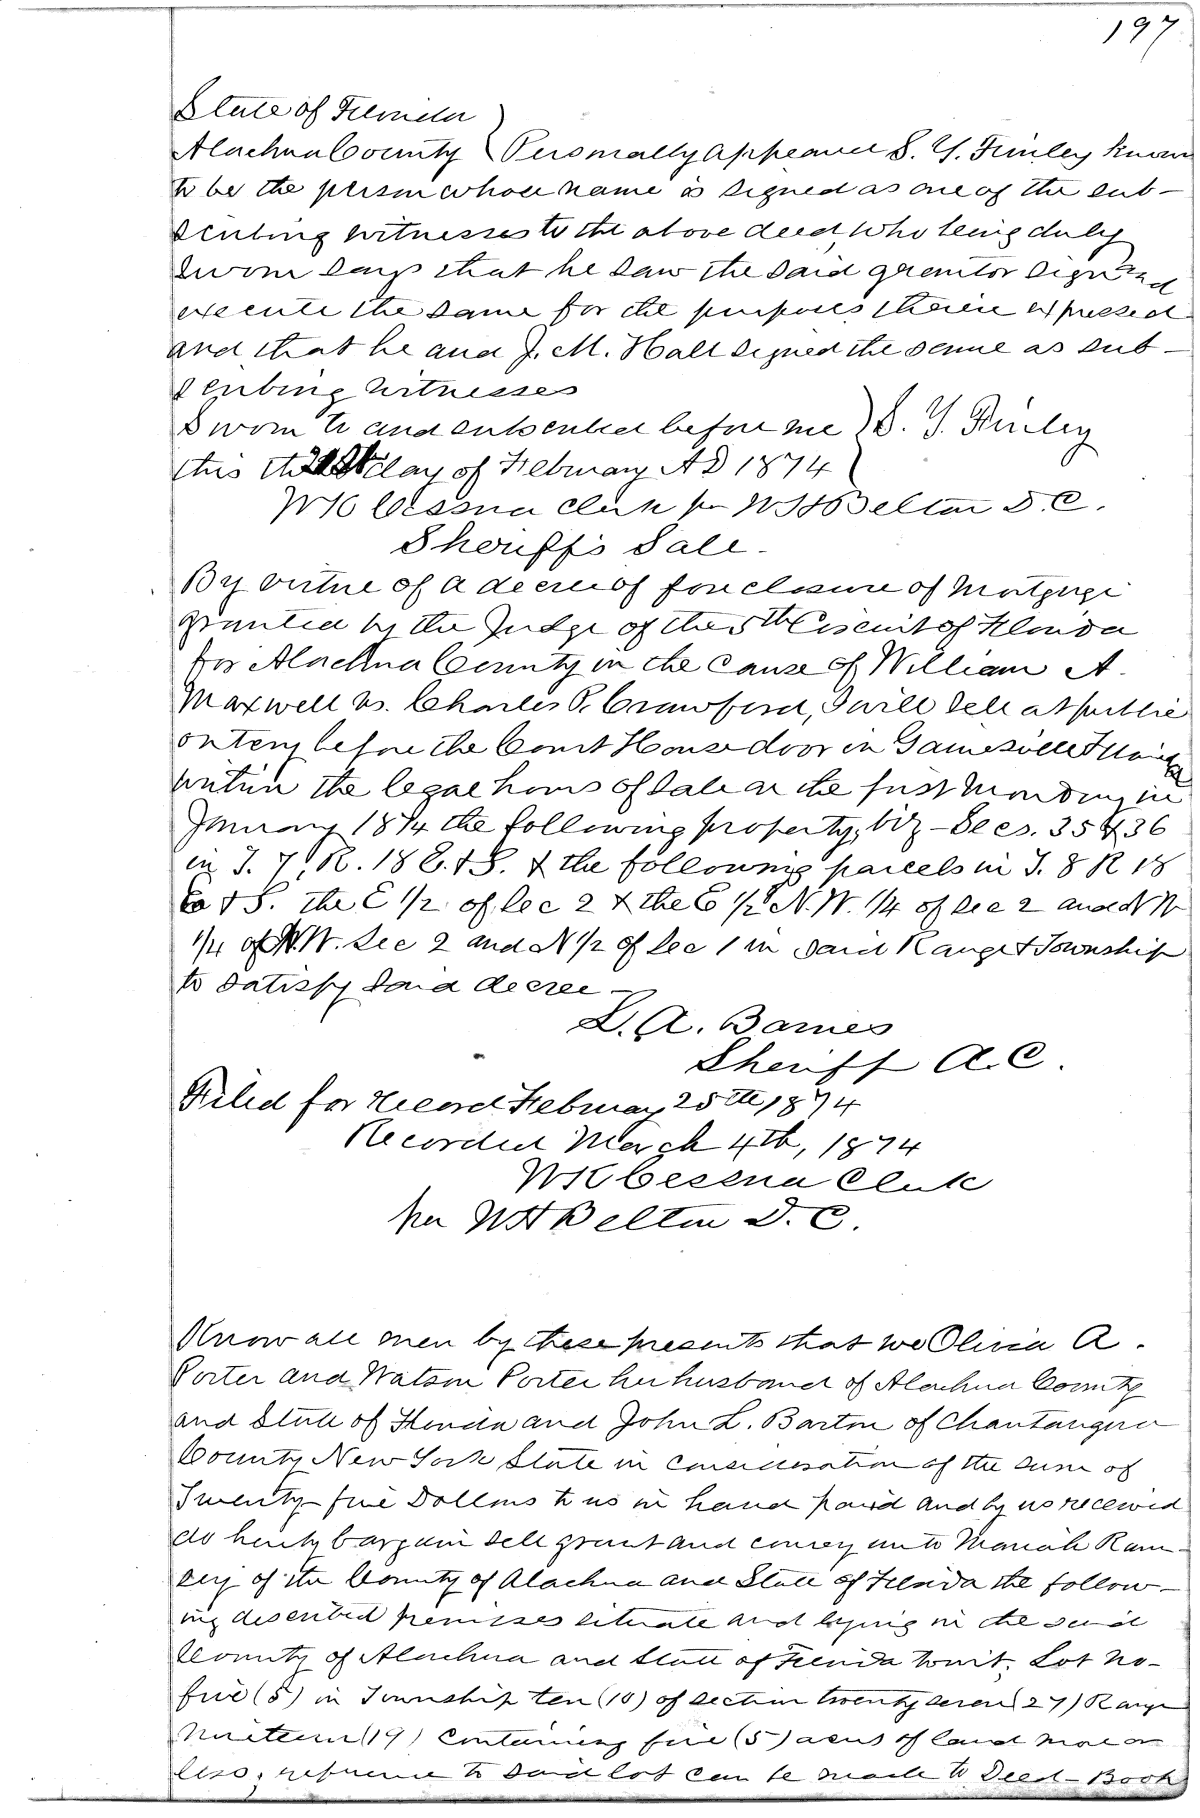 197
State of Florida
Alachua County } Personally appeared S. Y. Finley known
to be the person whose name is signed as one of the sub-
scribing witnesses to the above deed, who being duly
sworn says that he saw the said grantor sign and
execute the same for the purposes therein expressed
and that he and J. M. Hall signed the same as sub-
scribing witnesses
Sworn to and subscribed before me } S. Y. Finley
this the 21st day of February AD 1874
WK Cessna Clerk per WH Belton D.C.
Sheriff's Sale.
By virtue of a decree of foreclosure of Mortgage
granted by the Judge of the 5th Circuit of Florida
for Alachua County in the cause of William A.
Maxwell vs. Charles P. Crawford, I will sell at public
outcry before the Court House door in Gainesville Florida
within the legal hours of sale on the first Monday in
January 1874 the following property, viz - Secs. 35 & 36
in T. 7, R. 18 E. & S. & the following parcels in T. 8 R 18
E & S. the E 1/2 of Sec 2 & the E 1/2 N.W. 1/4 of Sec 2 and NW
1/4 of N.W. Sec 2 and N 1/2 of Sec 1 in said Range & Township
to satisfy said decree -
L. A. Barnes
Sheriff A.C.
Filed for record February 25th, 1874
Recorded March 4th, 1874
WK Cessna Clerk
per WH Belton D. C.
Know all men by these presents that we Olivia A.
Porter and Watson Porter her husband of Alachua County
and State of Florida and John L. Barton of Chautauqua
County New York State in consideration of the sum of
Twenty-five Dollars to us in hand paid and by us received
do hereby bargain sell grant and convey unto Mariah Ram-
sey of the County of Alachua and State of Florida the follow-
ing described premises situate and lying in the said
County of Alachua and State of Florida to wit; Lot no-
five (5) in Township ten (10) of section twenty seven (27) Range
Nineteen (19) containing five (5) acres of land more or
less; reference to said lot can be made to Deed-Book